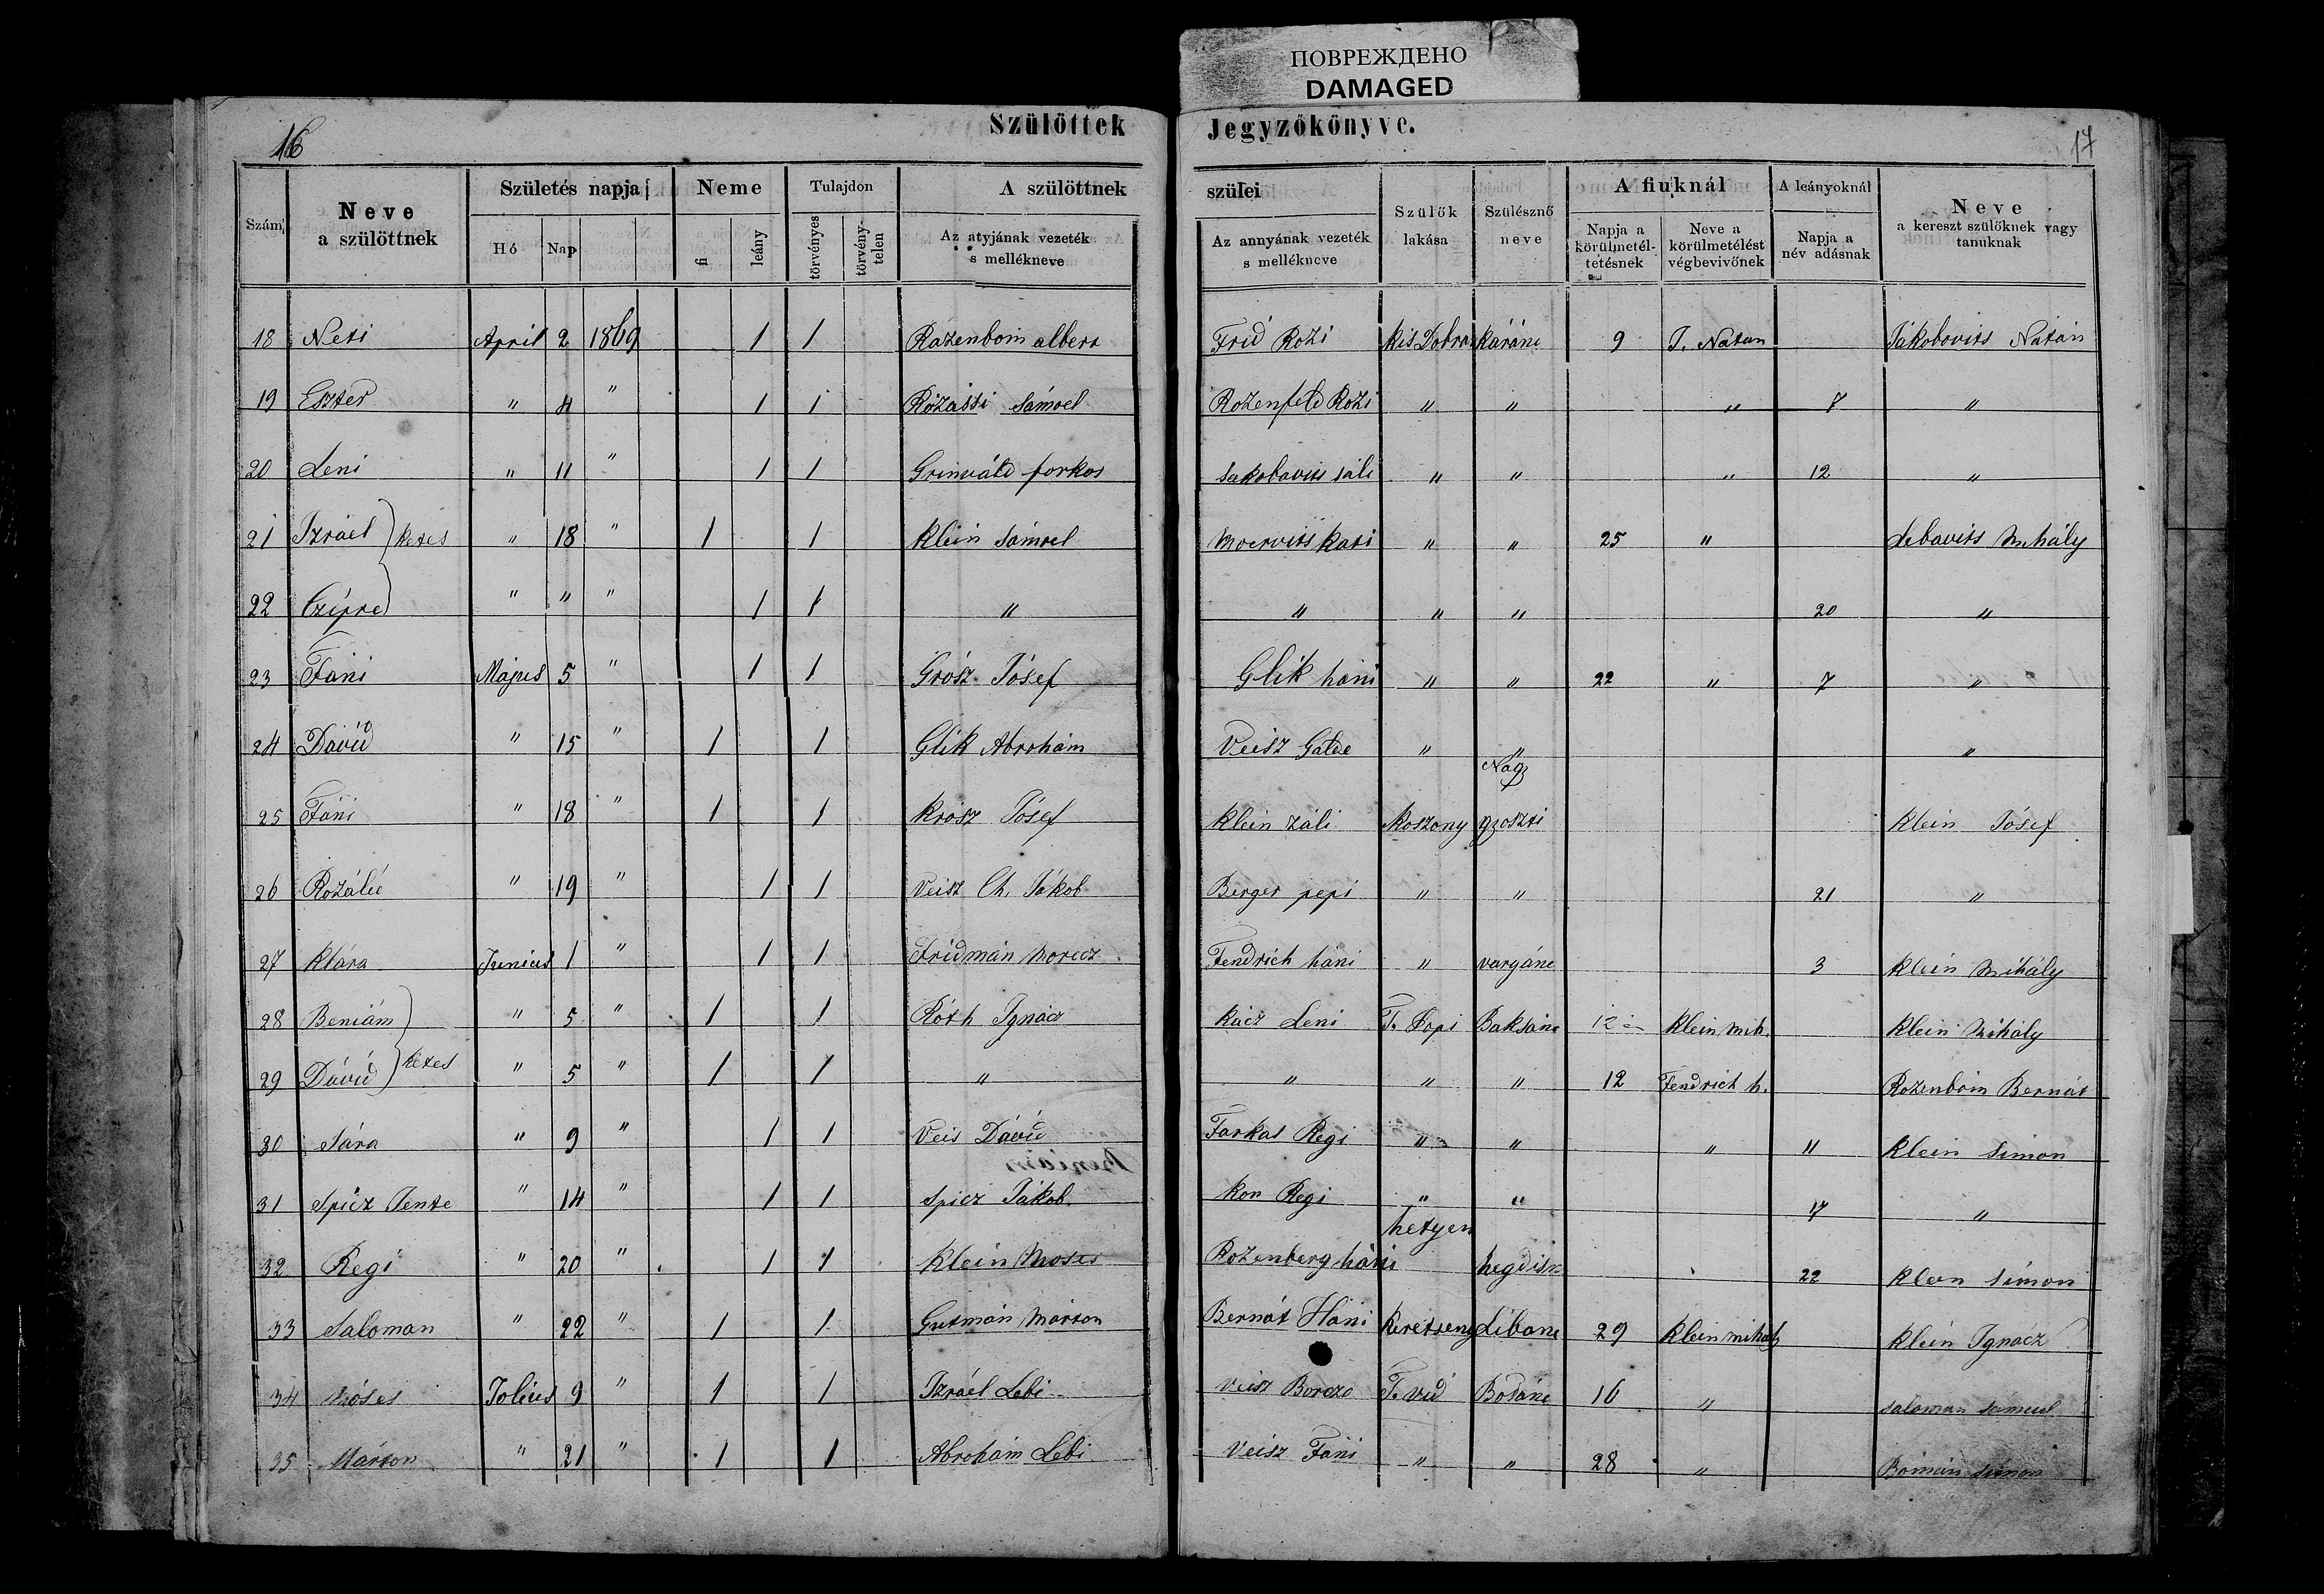 ПОВРЕЖДЕНО
DAMAGED
16
Szülöttek Jegyzőkönyve.
17
Szám Neve a szülöttnek Születés napja Hó Nap Neme fi leány Tulajdon törvényes törvénytelen A szülöttnek szülei Az atyjának vezeték s mellékneve Az annyának vezeték s mellékneve Szülők lakása Szülésznő neve A fiuknál Napja a körülmetéltetésnek Neve a körülmetélést végbevivőnek A leányoknál Napja a név adásnak Neve a kereszt szülőknek vagy tanuknak
18 Neti April 2 1869 1 1 Rozenbom albert Frid Rozi Kis Dobron káráne 9 J. Natan Jákobovits Nátán
19 Eszter " 4 " 1 1 Rózassi Sámoel Rozenfeld Rozi " " " 7 "
20 Leni " 11 " 1 1 Grinváld forkos Jakobovits sáli " " " 12 "
21 Izráel ketes " 18 " 1 1 Klein Sámoel Moervits Kati " " 25 " Lebovits Mihály
22 Czipre " " " 1 1 " " " " 20 "
23 Fáni Május 5 " 1 1 Grósz Jósef Glik háni " " 22 " 7 "
24 Dávid " 15 " 1 1 Glik Abrohám Veisz Galde " " "
25 Fáni " 18 " 1 1 Krósz Jósef Klein záli Koszony Nagy Klein Jósef
26 Rozália " 19 " 1 1 Veisz Ch. Jákob Berger pepi " " 21 "
27 Klára Junius 1 " 1 1 Fridmán Moricz Fendrich háni " vargáne 3 Klein Mihály
28 Beniám " 5 " 1 1 Róth Ignácz Kácz Leni T. Kopi Baksáne 12 Klein mih. Klein Mihály
29 Dávid ketes " 5 " 1 1 " " " " 12 Fendrich h. Rozenbom Bernát
30 Sára " 9 " 1 1 Veis Dávid Farkas Regi " " " 11 Klein Simon
31 Spicz Tente " 14 " 1 1 Spicz Jákob Kon Regi " " 17 "
32 Regi " 20 " 1 1 Klein Moses Rozenberg háni hetyen 22 Klein Simon
33 Saloman " 22 " 1 1 Gutmán Márton Bernát Háni Keretseny Libane 29 Klein mihaly Klein Ignácz
34 Móses Jolius 9 " 1 1 Izráel Lebi Veisz Borcza T. vid Botáne 16 " Saloman Samuel
35 Márton " 21 " 1 1 Abrohám Lebi Veisz Fáni " " 28 " Simon